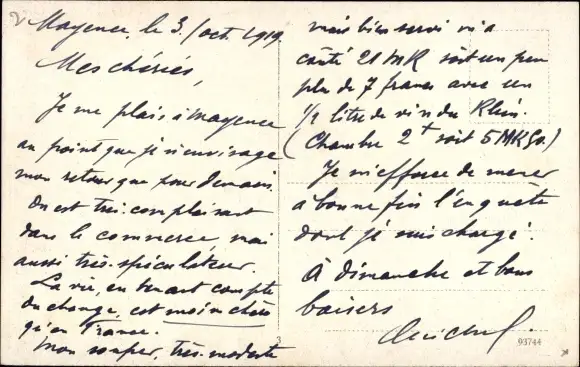 Mayence, le 3./oct. 1919.
Mes chéries,
Je me plais à Mayence
au point que je n'envisage
mon retour que pour demain.
On est très complaisant
dans le commerce, mais
aussi très spéculateur.
La vie, en tenant compte
du change, est moins chère
qu'en France.
Mon souper, très modeste
mais bien servi m'a
coûté 21 MK soit un peu
plus de 7 francs avec un
1/2 litre de vin du Rhin.
(Chambre 2+ soit 5 MK 50.)
Je m'efforce de mener
à bonne fin l'enquête
dont je suis chargé.
À dimanche et bons
baisers
93744